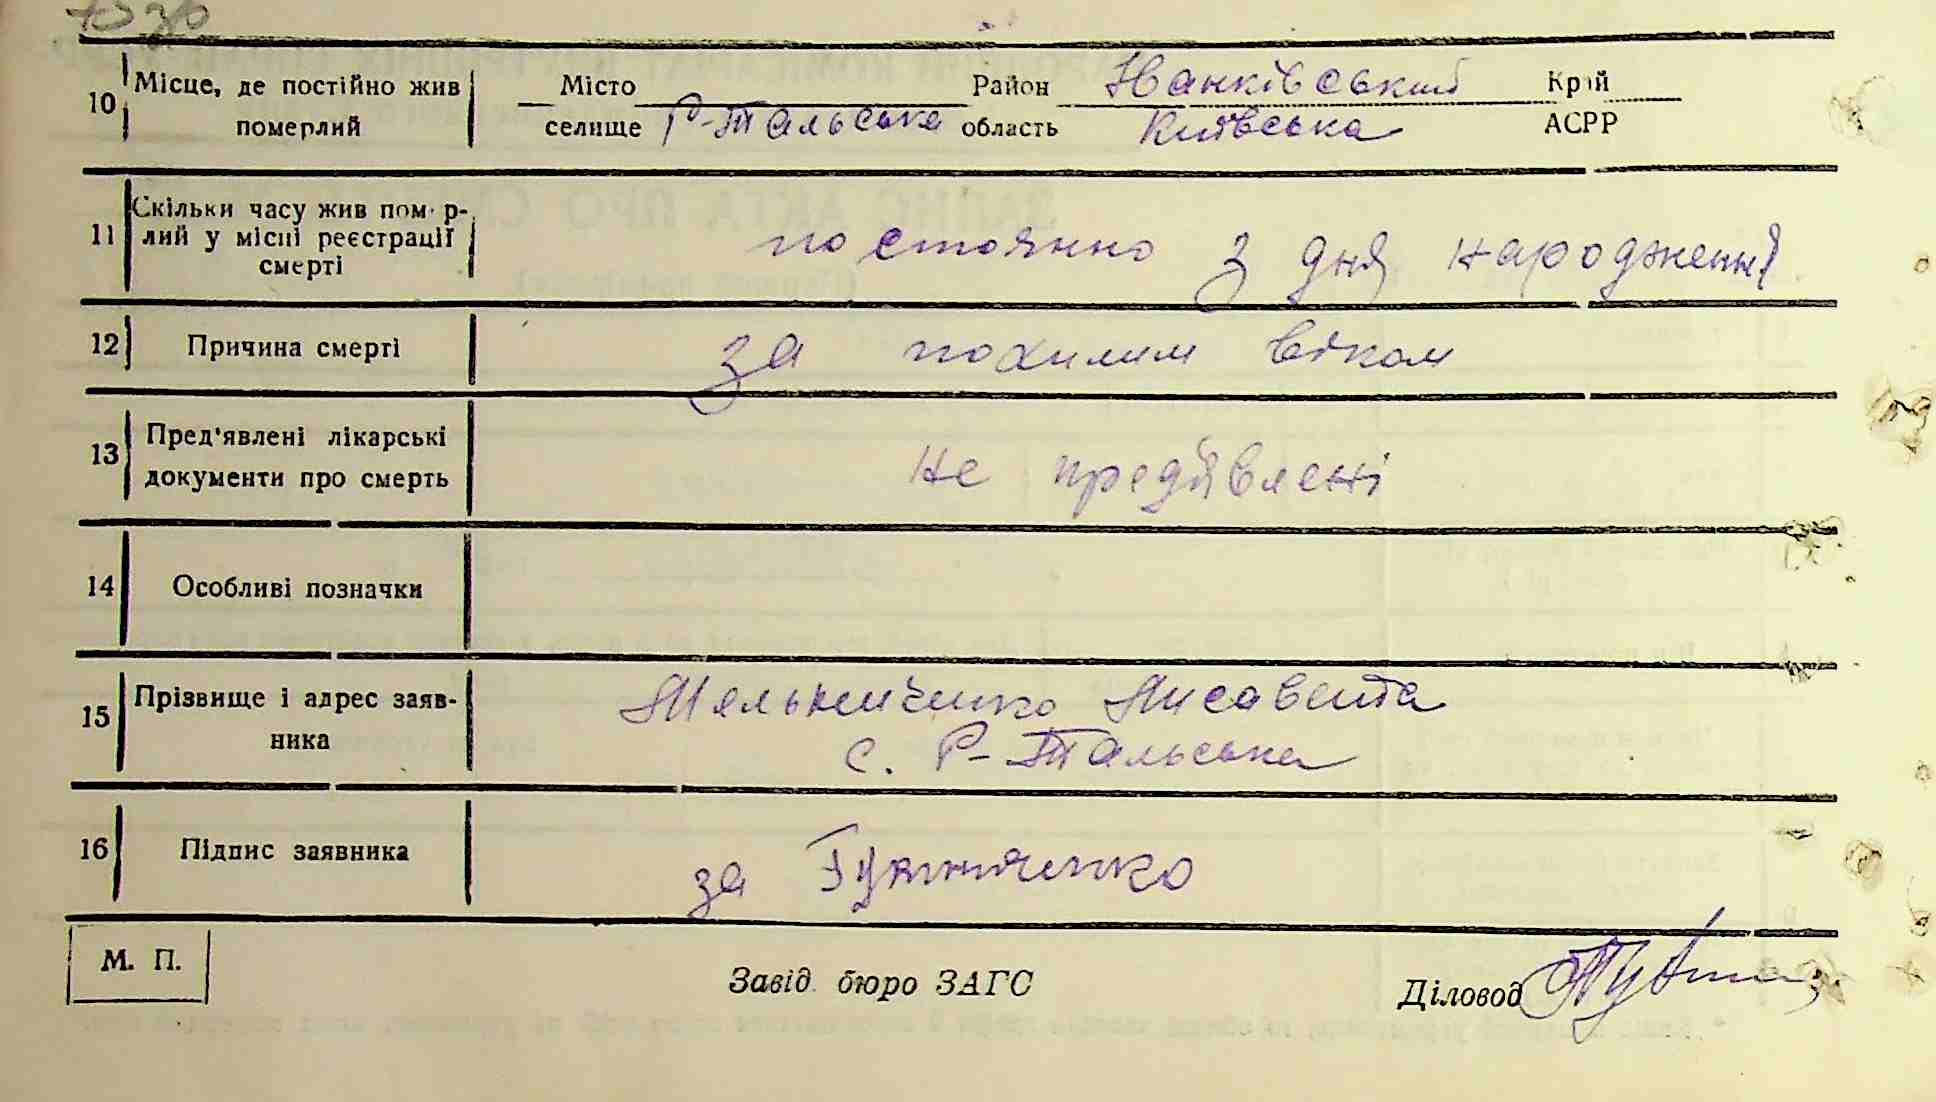 10 Місце, де постійно жив померлий
Місто селище Р-Тальська Район область Іванківський Київська Край АСРР
11 Скільки часу жив помер-
лий у місці реєстрації
смерті
постоянно з дня народження
12 Причина смерті
за похилим віком
13 Пред'явлені лікарські
документи про смерть
не предявлені
14 Особливі позначки
15 Прізвище і адрес заяв-
ника
Мельниченко Лисавета
с. Р-Тальська
16 Підпис заявника
за
М. П.
Завід. бюро ЗАГС
Діловод